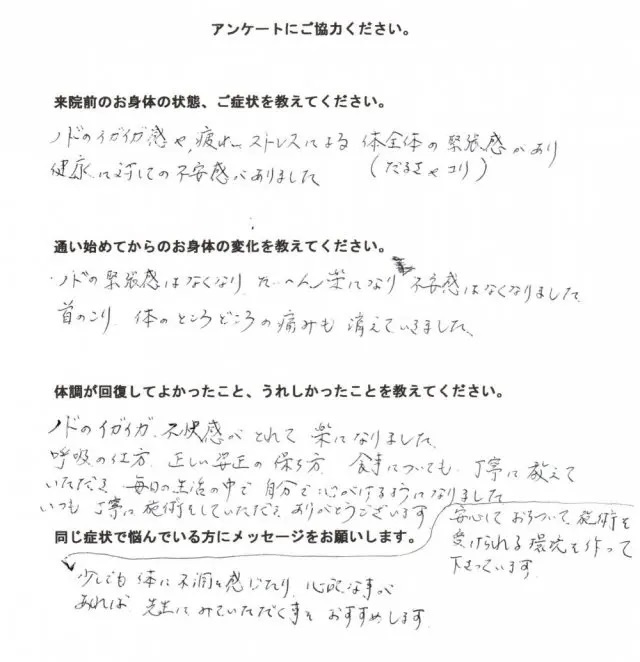 アンケートにご協力ください。
来院前のお身体の状態、ご症状を教えてください。
ノドのイガイガ感や、疲れ、ストレスによる 体全体の緊張感があり
(だるさやコリ)
健康に対しての不安感がありました
通い始めてからのお身体の変化を教えてください。
・ノドの緊張感はなくなり たいへん楽になり 不安感はなくなりました
首のこり 体のところどころの痛みも 消えていきました、
体調が回復してよかったこと、うれしかったことを教えてください。
ノドのイガイガ、不快感がとれて 楽になりました、
呼吸の仕方 正しい姿正の保ち方 食事についても、丁寧に教えて
いただき 毎日の生活の中で 自分で心がけるようになりました
いつも 丁寧に施術をしていただき ありがとうございます
安心して おちついて 施術を
受けられる環境を作って
下さっています
同じ症状で悩んでいる方にメッセージをお願いします。
少しでも体に不調を感じたり 心配な事が
あれば 先生に みていただく事を おすすめします